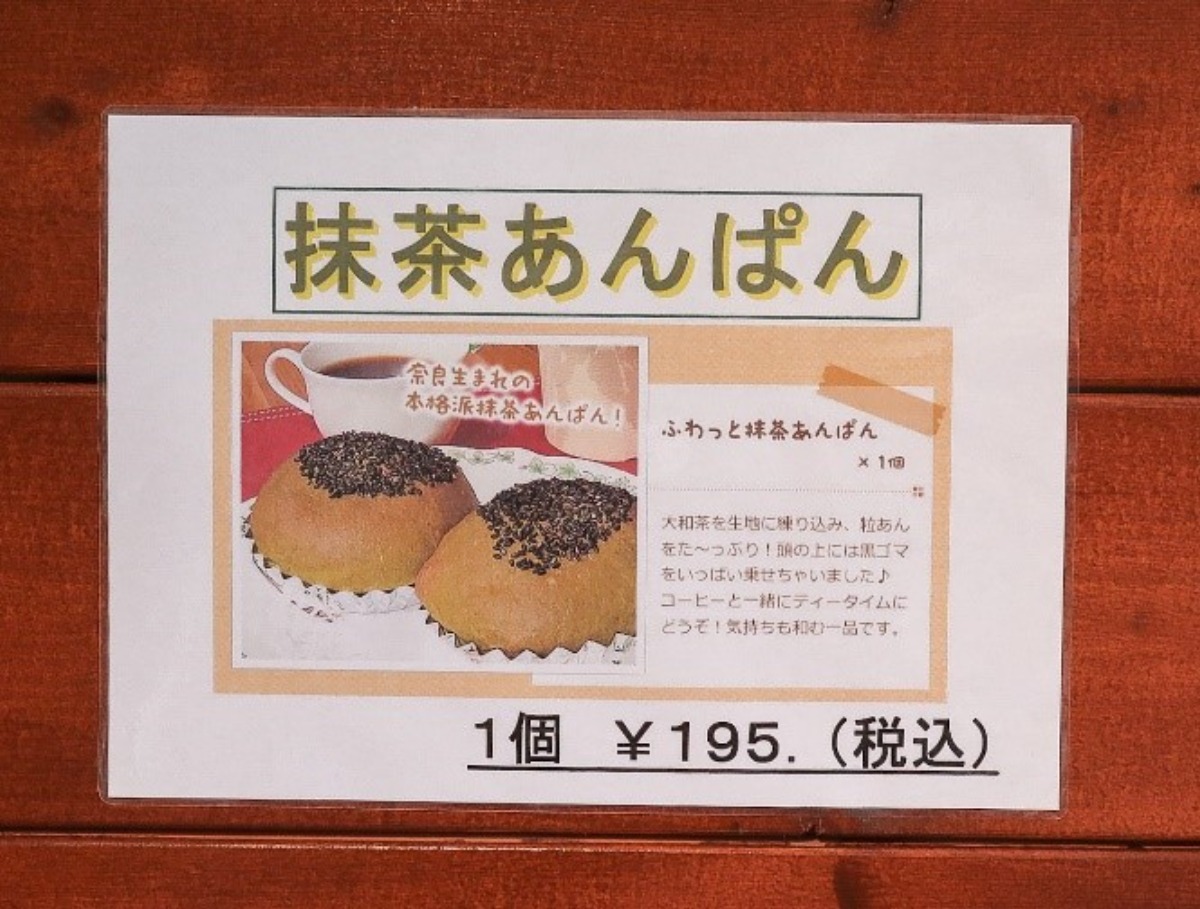 抹茶あんぱん
奈良生まれの
本格派抹茶あんぱん！
ふわっと抹茶あんぱん
× 1個
大和茶を生地に練り込み、粒あん
をた～っぷり！頭の上には黒ゴマ
をいっぱい乗せちゃいました♪
コーヒーと一緒にティータイムに
どうぞ！気持ちも和む一品です。
1個　￥195.（税込）